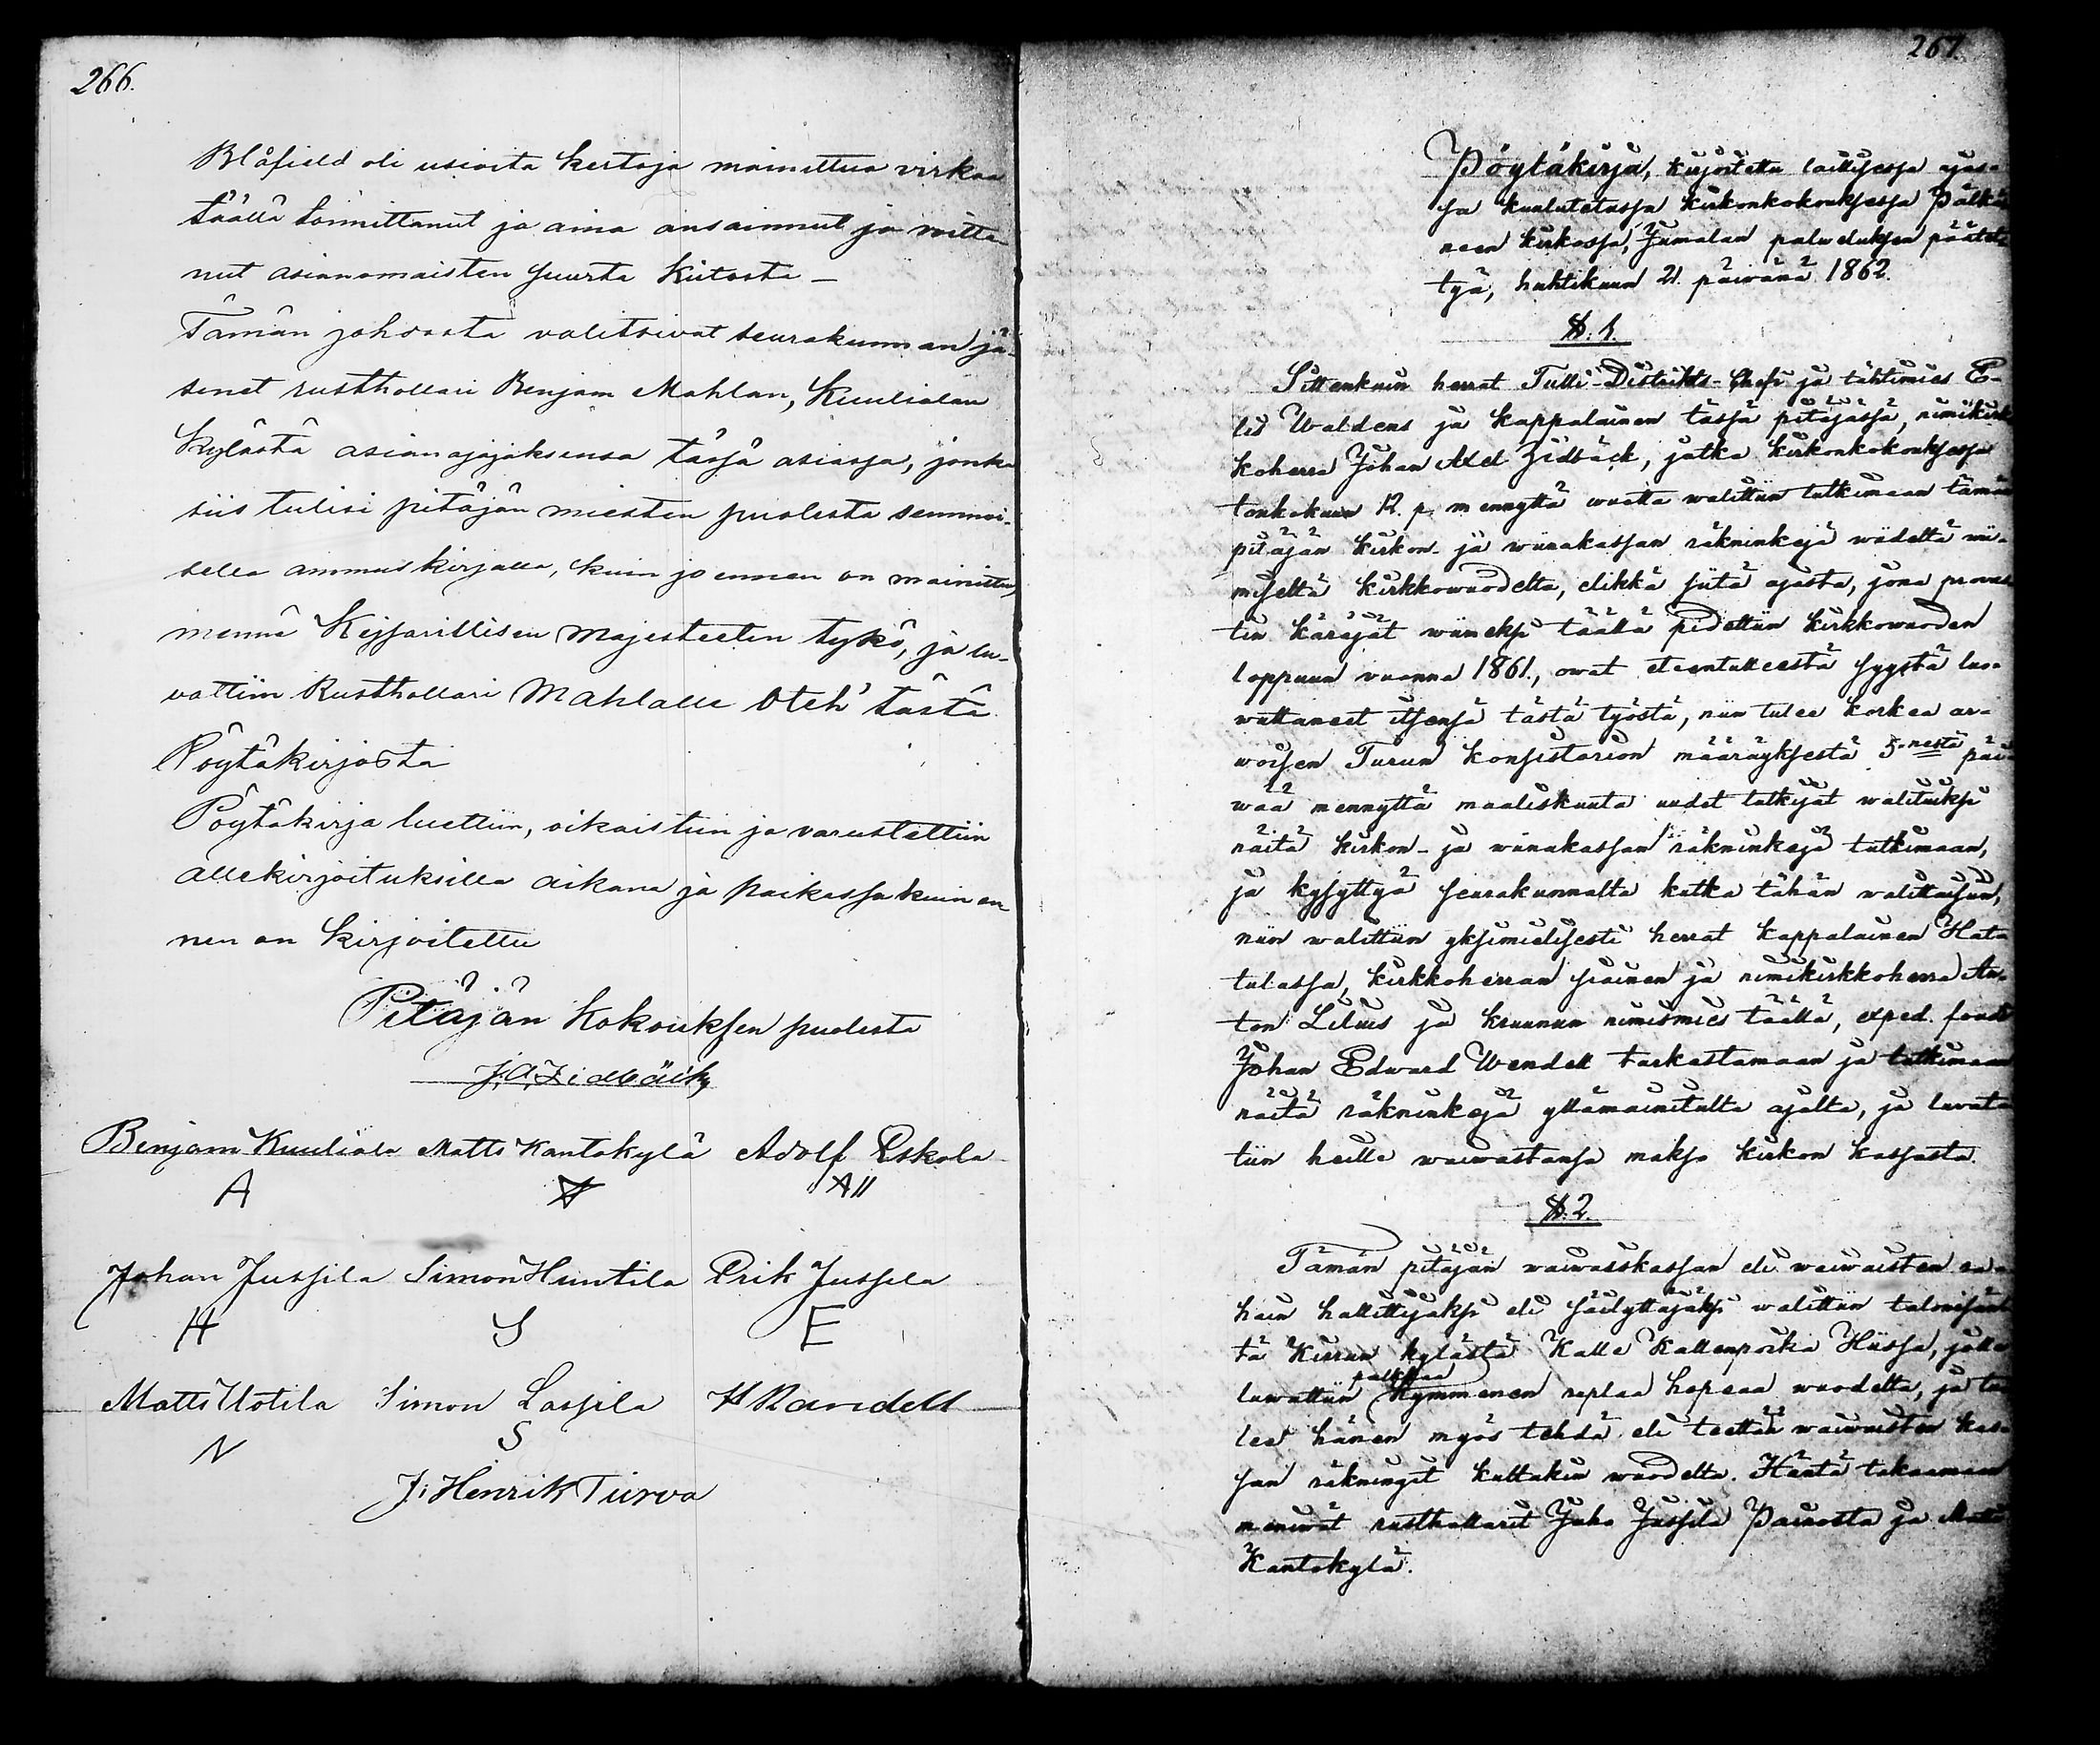 266.
Blåfield oli usioita kertoja mainittua virkaa
täällä toimittanut ja aina ansainnut ja voitta-
nut asianomaisten suurta kiitosta —
Tämän johdosta valitsivat seurakunnan jä-
senet rusthollari Benjam Mahlan, Kuulialan
kylästä asianajajaksensa tässä asiassa, jonka
siis tulisi pitäjän miesten puolesta semmoi-
sella ammuskirjalla, kuin jo ennen on mainittu,
mennä Keisarillisen Majesteetin tykö, ja lu-
vattiin Rusthollari Mahlalle Oteh' tästä
Pöytäkirjasta
Pöytäkirja luettiin, oikaistiin ja varustettiin
allekirjoituksilla aikana ja paikassa kuin en-
nen on kirjoitettu
Pitäjän Kokouksen puolesta
J. A. Zidbäck
Benjam Kuuliala Matts Kantokylä Adolf Eskola
A
Johan Jussila Simon Huntila Erik Jussila
H S E
Matts Uotila Simon Lassila H Randell
N S
J. Henrik Tiirva
267.
Pöytäkirja, kirjoitettu laillisessa ajas-
sa kuulutetussa kirkonkokouksessa Pälkä-
neen kirkossa, Jumalan palveluksen päätet-
tyä, huhtikuun 21. päivänä 1862.
§. 1.
Sittenkuin herrat Tulli-Distrikts-Chefi ja tähtimies E-
lis Waldens ja kappalainen tässä pitäjässä, nimikirk-
koherra Johan Axel Zidbäck, jotka kirkonkokouksessa
toukokuun 12. p. mennyttä vuotta valittiin tutkimaan tämän
pitäjän kirkon- ja viinakassan räkninkejä viideltä vii-
miseltä kirkkowuodelta, elikkä siitä ajasta, jona provas-
tin käräjät wiimeksi täällä pidettiin kirkkowuoden
loppuun vuonna 1861., owat eteentulleesta syystä luo-
wuttaneet itsensä tästä työstä, niin tulee korkea ar-
woisen Turun Konsistorion määräyksestä 5-nestä päi-
wää mennyttä maaliskuuta uudet tutkijat walituiksi
näitä kirkon- ja wiinakassan räkninkejä tutkimaan,
ja kysyttyä seurakunnalta kutka tähän walittaisiin,
niin walittiin yksimielisesti herrat kappalainen Hat-
tulassa, kirkkoherran siainen ja nimikirkkoherra An-
ton Lilius ja kruunun nimismies täällä, exped. foudi
Johan Edward Wendell tarkastamaan ja tutkimaan
näitä räkninkejä yllämainitulta ajalta, ja luvat-
tiin heille waiwastansa maksu kirkon kassasta.
§. 2.
Tämän pitäjän waiwaiskassan eli waiwaisten ra-
hain hallittijaksi eli säilyttäjäksi walittiin talonisän-
tä Kirran kylästä Kalle Kallenpoika Hiissa, jolle
luwattiin palkkaa kymmenen ruplaa hopeaa wuodelta, ja tu-
lee hänen myös tehdä eli teettää waiwaisten kas-
san räkningit kultakin wuodelta. Häntä takaamaan
meniwät rusthollarit Juho Jussila Painosta ja Matti
Kantokylä.